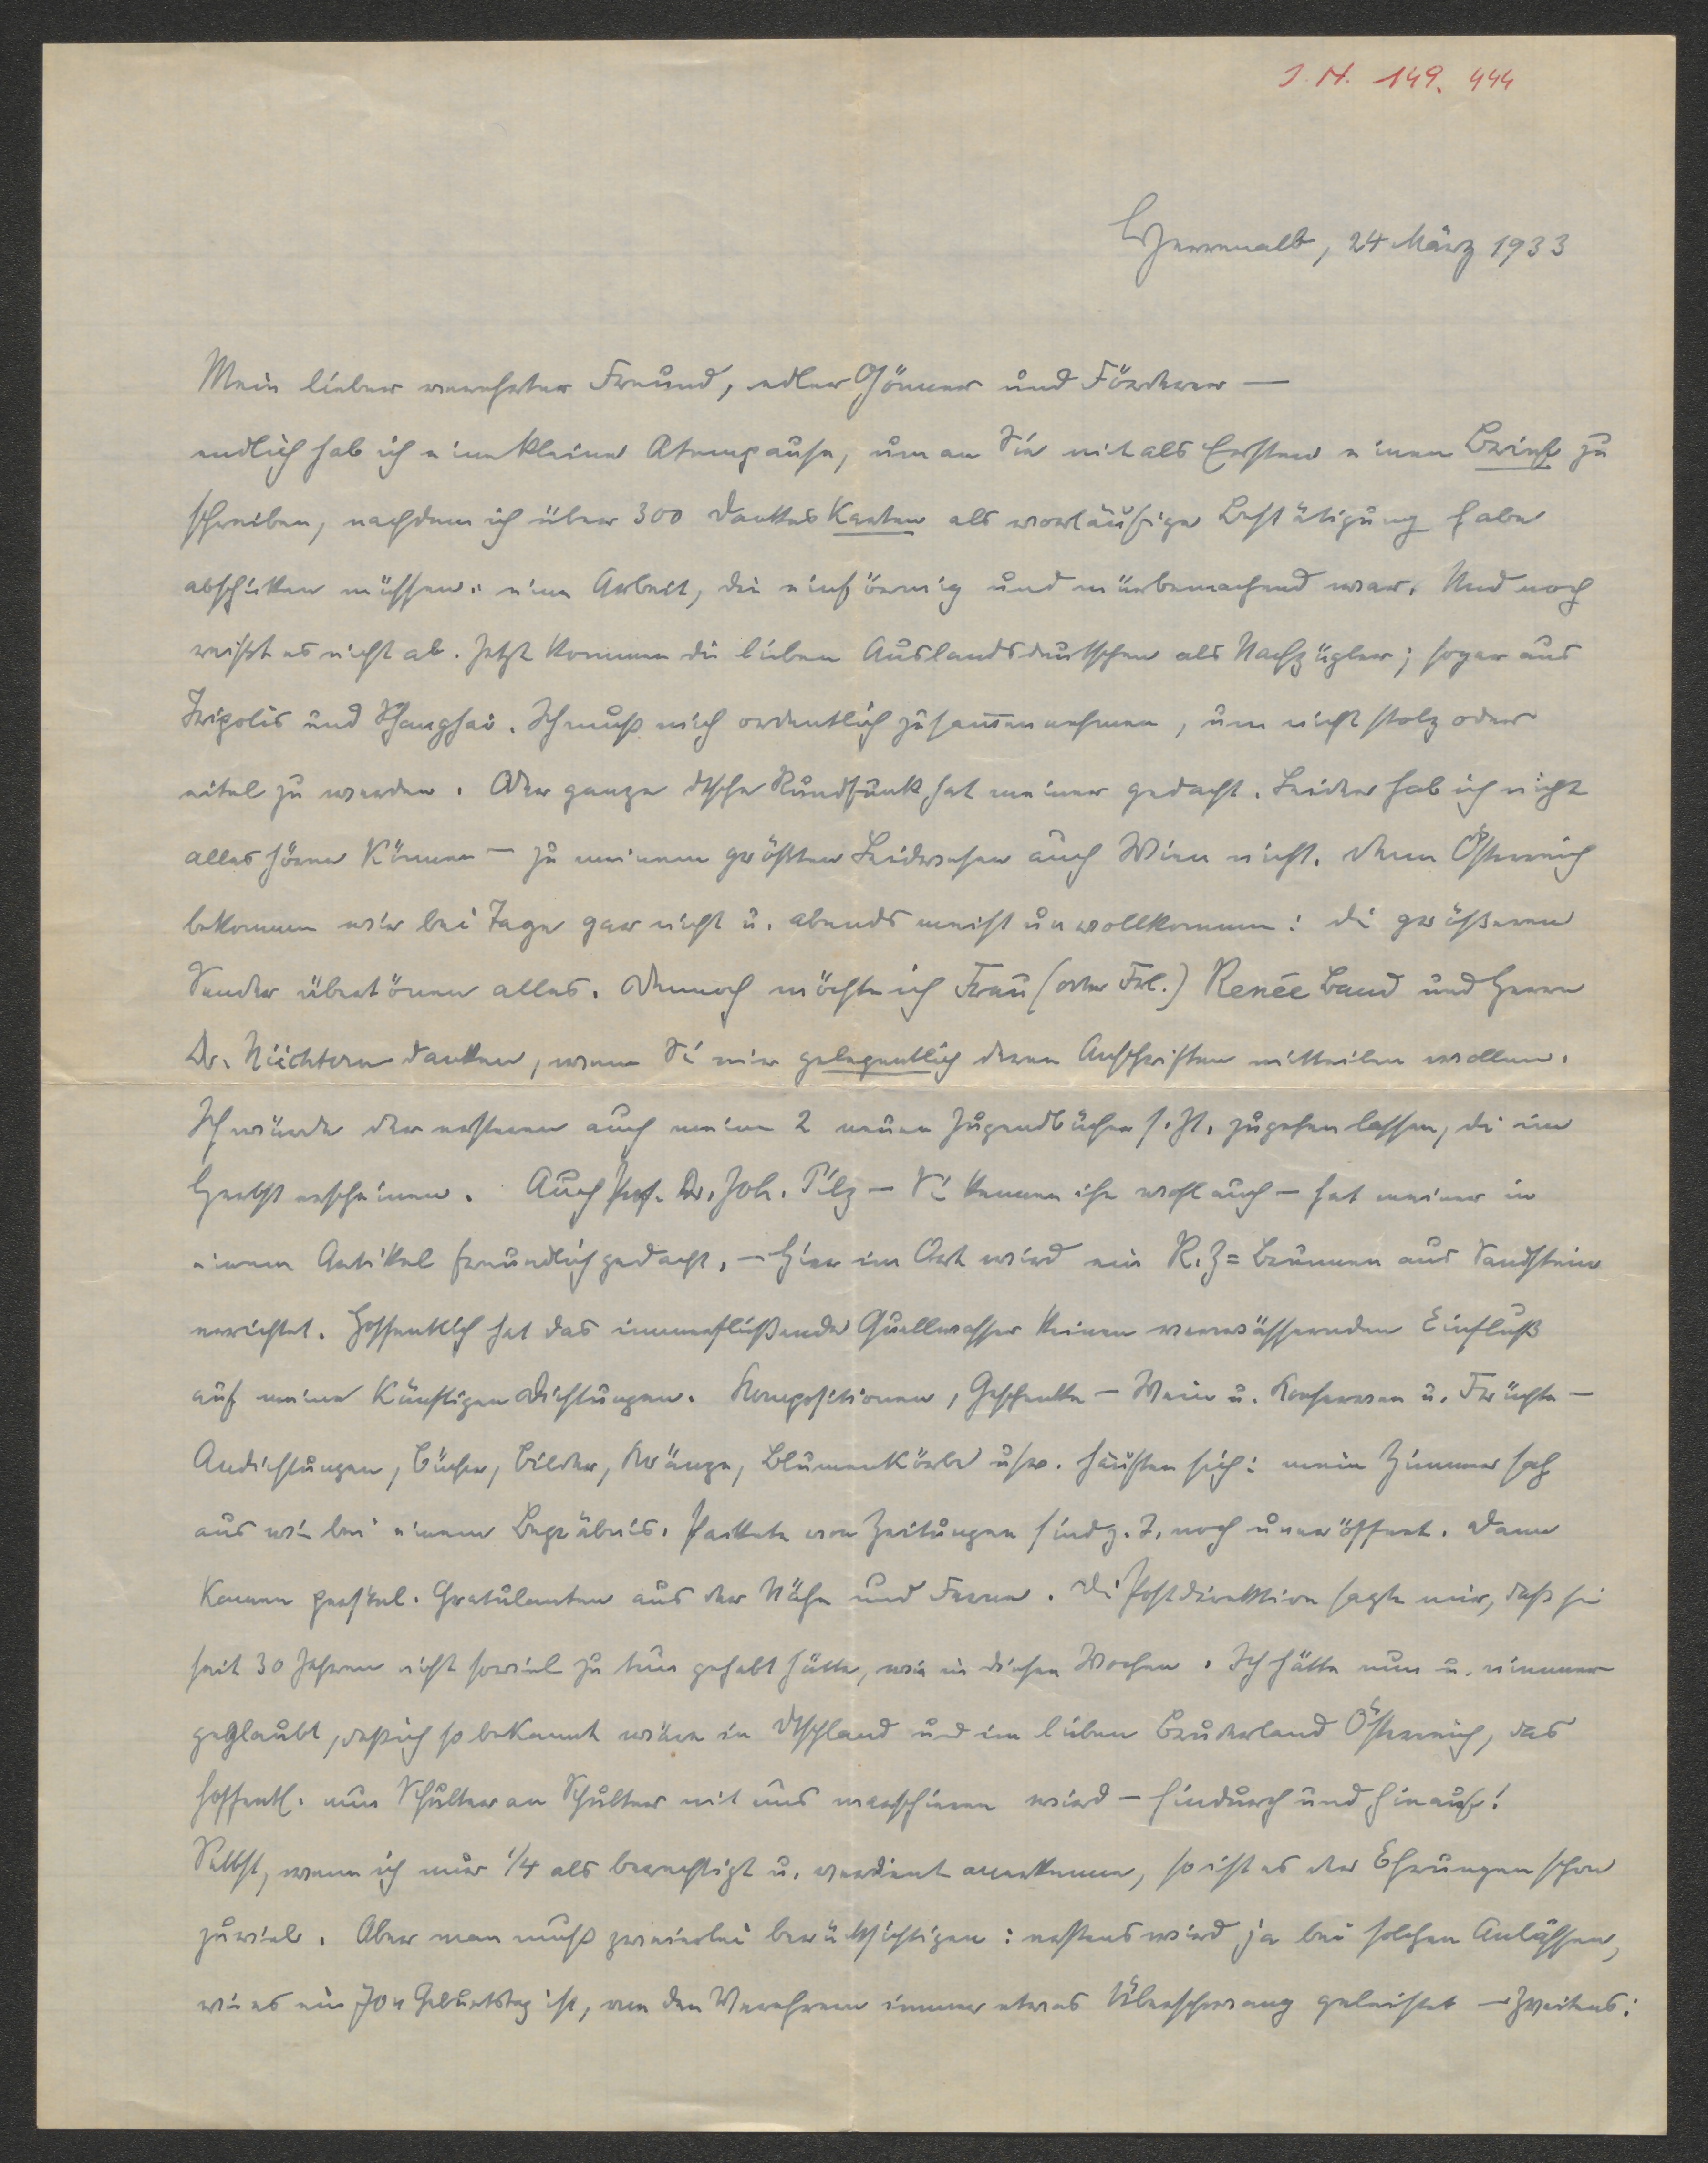 J. N. 149.444
Herrenalb, 24 März 1933
Mein lieber verehrter Freund, edler Gönner und Förderer —
endlich hab ich eine kleine Atempause, um an Sie mit als Ersten einen Brief zu
schreiben, nachdem ich über 300 Dankes Karten als vorläufige Bestätigung habe
abschicken müssen: eine Arbeit, die einförmig und mürbemachend war. Und noch
reißt es nicht ab. Jetzt kommen die lieben Auslandsdeutschen als Nachzügler; sogar aus
Tripolis und Shanghai. Ich muß mich ordentlich zusammennehmen, um nicht stolz oder
eitel zu werden. Der ganze dtsche Rundfunk hat meiner gedacht. Leider hab ich nicht
alles hören können — zu meinem größten Leidwesen auch Wien nicht. Denn Österreich
bekommen wir bei Tage gar nicht u. abends meist unvollkommen: die größeren
Sender übertönen alles. Dennoch möchte ich Frau (oder Frl.) Renée Band und Herrn
Dr. Nüchtern danken, wenn Sie mir gelegentlich deren Anschriften mitteilen wollen.
Ich würde der ersteren auch meine 2 neuen Jugendbücher s. Zt. zugehen lassen, die im
Herbst erscheinen. Auch Prof. Dr. Joh. Pilz — Sie kennen ihn wohl auch — hat meiner in
einem Artikel freundlich gedacht. — Hier im Ort wird ein R. Z = Brunnen aus Sandstein
errichtet. Hoffentlich hat das immerfließende Quellwasser keinen verwässernden Einfluß
auf meine künftigen Dichtungen. Kompositionen, Geschenke — Wein u. Konserven u. Früchte —
Andichtungen, Bücher, Bilder, Kränze, Blumenkörbe usw. häuften sich: mein Zimmer sah
aus wie bei einem Begräbnis. Pakete von Zeitungen sind z. T. noch uneröffnet. Dann
kamen persönl. Gratulanten aus der Nähe und Ferne. Die Postdirektion sagte mir, daß sie
seit 30 Jahren nicht soviel zu tun gehabt hätte, wie in diesen Wochen. Ich hätte nun u. nimmer
geglaubt, daß ich so bekannt wäre in Dtschland und im lieben Bruderland Österreich, das
hoffentl. nun Schulter an Schulter mit uns marschieren wird — hindurch und hinauf!
Selbst, wenn ich nur 1/4 als berechtigt u. verdient anerkenne, so ist es der Ehrungen schon
zuviel. Aber man muß zweierlei berücksichtigen: erstens wird ja bei solchen Anlässen,
wie es ein 70er Geburtstag ist, von den Verehrern immer etwas Überschwang geleistet — Zweitens: